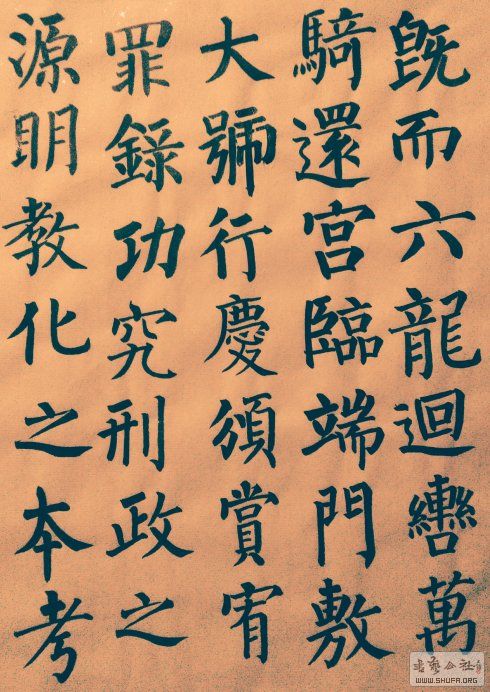 既而六龍迴轡萬
騎還宮臨端門敷
大號行慶頒賞宥
罪錄功究刑政之
源明教化之本考
書藝公社
WWW.SHUFA.ORG